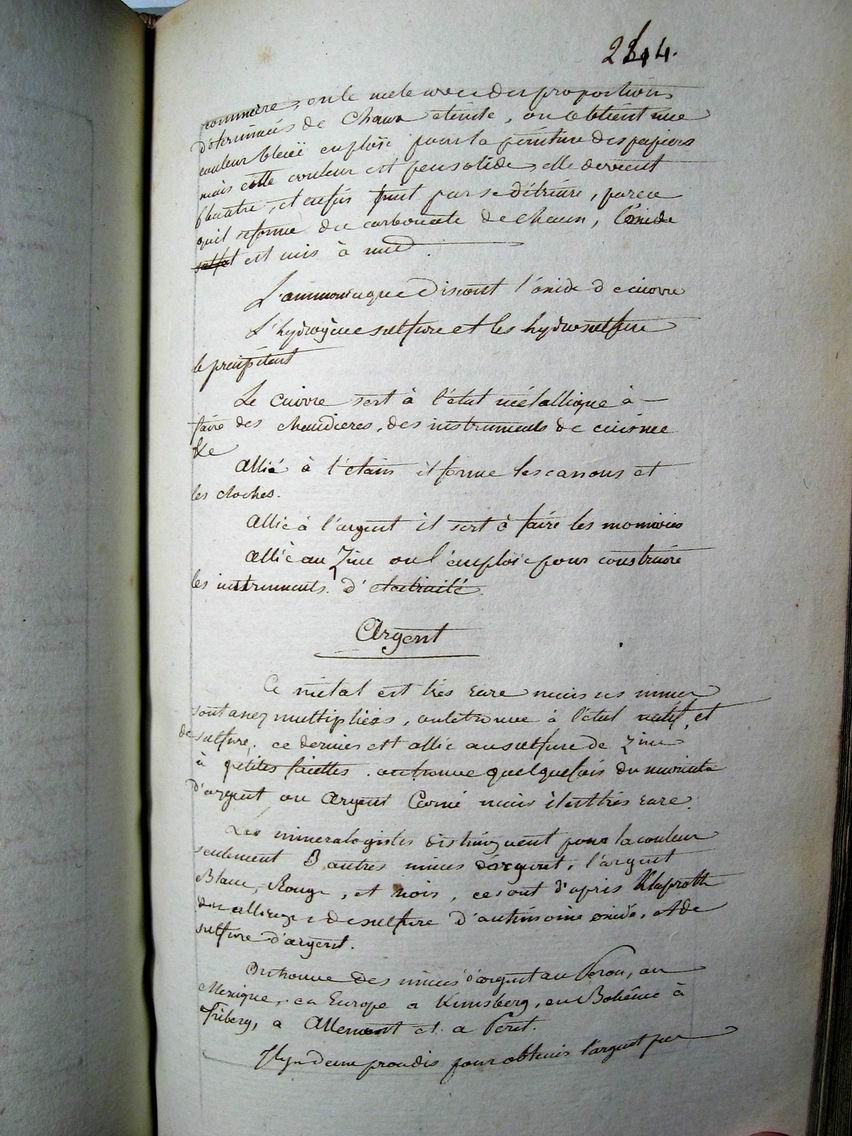 244.
commerce, on le mele avec des proportions
déterminées de Chaux eteinte, on obtient une
couleur bleüe emploié pour la peinture des papiers
mais cette couleur est peu solide, elle devient
et enfin finit par se détruire, parce
qu'il reforme du carbonate de chaux, l'oxide
est mis à nud.
L'ammoniaque dissout l'oxide de cuivre
L'hydrogène sulfure et les hydrosulfure
le précipitent
Le cuivre sert à l'état métallique à
faire des chaudieres, des instruments de cuisine
&c
Allié à l'étain il forme les canons et
les cloches.
Allié à l'argent il sert à faire les monnoies
Allié au Zinc on l'emploie pour construire
les instruments d'électricité
Argent
Ce métal est très rare mais ses mines
sont assez multipliées, on le trouve à l'état natif, et
de sulfure, ce dernier est allié au sulfure de Zinc
à petites facettes. on trouve quelquefois du muriate
d'argent ou Argent Corné mais il est très rare.
Les mineralogistes distinguent pour la couleur
seulement 3 autres mines d'argent, l'argent
Blanc, Rouge, et noir, ce sont d'après Klaproth
des alliages de sulfure d'antimoine oxidé, et de
sulfure d'argent.
On trouve des mines d'argent au Perou, au
Mexique, en Europe a Kunsberg, en Bohême à
Friberg, a Allemont et a
Il y a deux procédés pour obtenir l'argent pur